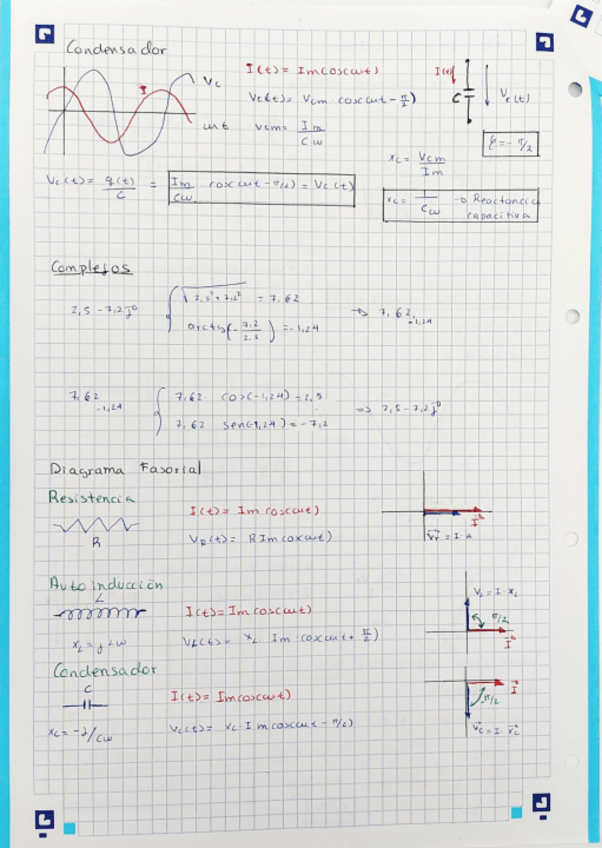 Condensador
V_c
I
ωt
I(t) = Im cos(ωt)
V_c(t) = V_cm cos(ωt - π/2)
V_cm = Im/Cω
I(t)
C
V_c(t)
φ = -π/2
x_c = V_cm/Im
V_c(t) = q(t)/C = Im/Cω cos(ωt - π/2) = V_c(t)
x_c = 1/Cω → Reactancia capacitiva
Complejos
2,5 - 7,2j
√(2,5² + 7,2²) = 7,62
arctg(-7,2/2,5) = -1,24
⇒ 7,62 -1,24
7,62 -1,24
7,62 cos(-1,24) = 2,5
7,62 sen(-1,24) = -7,2
⇒ 2,5 - 7,2j
Diagrama Fasorial
Resistencia
R
I(t) = Im cos(ωt)
V_R(t) = R Im cos(ωt)
I
V_r = I · R
Autoinducción
L
x_L = jLω
I(t) = Im cos(ωt)
V_L(t) = x_L Im · cos(ωt + π/2)
V_L = I · x_L
π/2
I
Condensador
C
x_c = -j/Cω
I(t) = Im cos(ωt)
V_c(t) = x_c · Im cos(ωt - π/2)
I
π/2
V_c = I · x_c